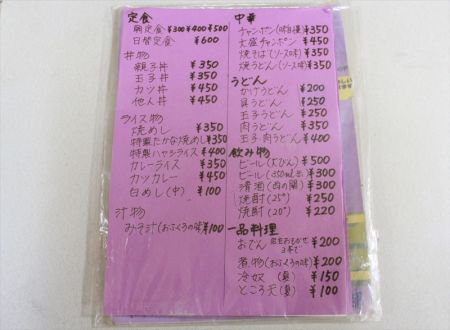 定食
朝定食 ¥300 ¥400 ¥500
日替定食 ¥600
丼物
親子丼 ¥350
玉子丼 ¥350
カツ丼 ¥450
他人丼 ¥450
ライス物
焼めし ¥350
特製たかな焼めし ¥350
特製ハヤシライス ¥400
カレーライス ¥350
カツカレー ¥450
白めし(中) ¥100
汁物
みそ汁(おふくろの味) ¥100
中華
チャンポン(味自慢) ¥350
大盛チャンポン ¥450
焼そば(ソース味) ¥350
焼うどん(ソース味) ¥350
うどん
かけうどん ¥200
具うどん ¥250
玉子うどん ¥250
肉うどん ¥350
玉子肉うどん ¥400
飲み物
ビール(大びん) ¥500
ビール(350ml缶) ¥300
清酒(西の関) ¥300
焼酎(25°) ¥250
焼酎(20°) ¥220
一品料理
おでん 3本で ¥200
煮物(おふくろの味) ¥200
冷奴(夏) ¥150
ところ天(夏) ¥100